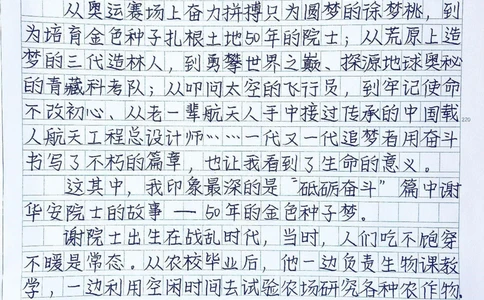 从奥运赛场上奋力拼搏只为圆梦的徐梦桃，到
为培育金色种子扎根土地50年的院士；从荒原上造
梦的三代造林人，到勇攀世界之巅、探源地球奥秘
的青藏科考队；从叩问太空的飞行员，到牢记使命
不改初心、从老一辈航天人手中接过传承的中国载
220
人航天工程总设计师……一代又一代追梦者用奋斗
书写了不朽的篇章，也让我看到了生命的意义。
这其中，我印象最深的是“砥砺奋斗”篇中谢
华安院士的故事——50年的金色种子梦。
谢院士出生在战乱时代，当时，人们吃不饱穿
不暖是常态。从农校毕业后，他一边负责生物课教
学，一边利用空闲时间去试验农场研究各种农作物，